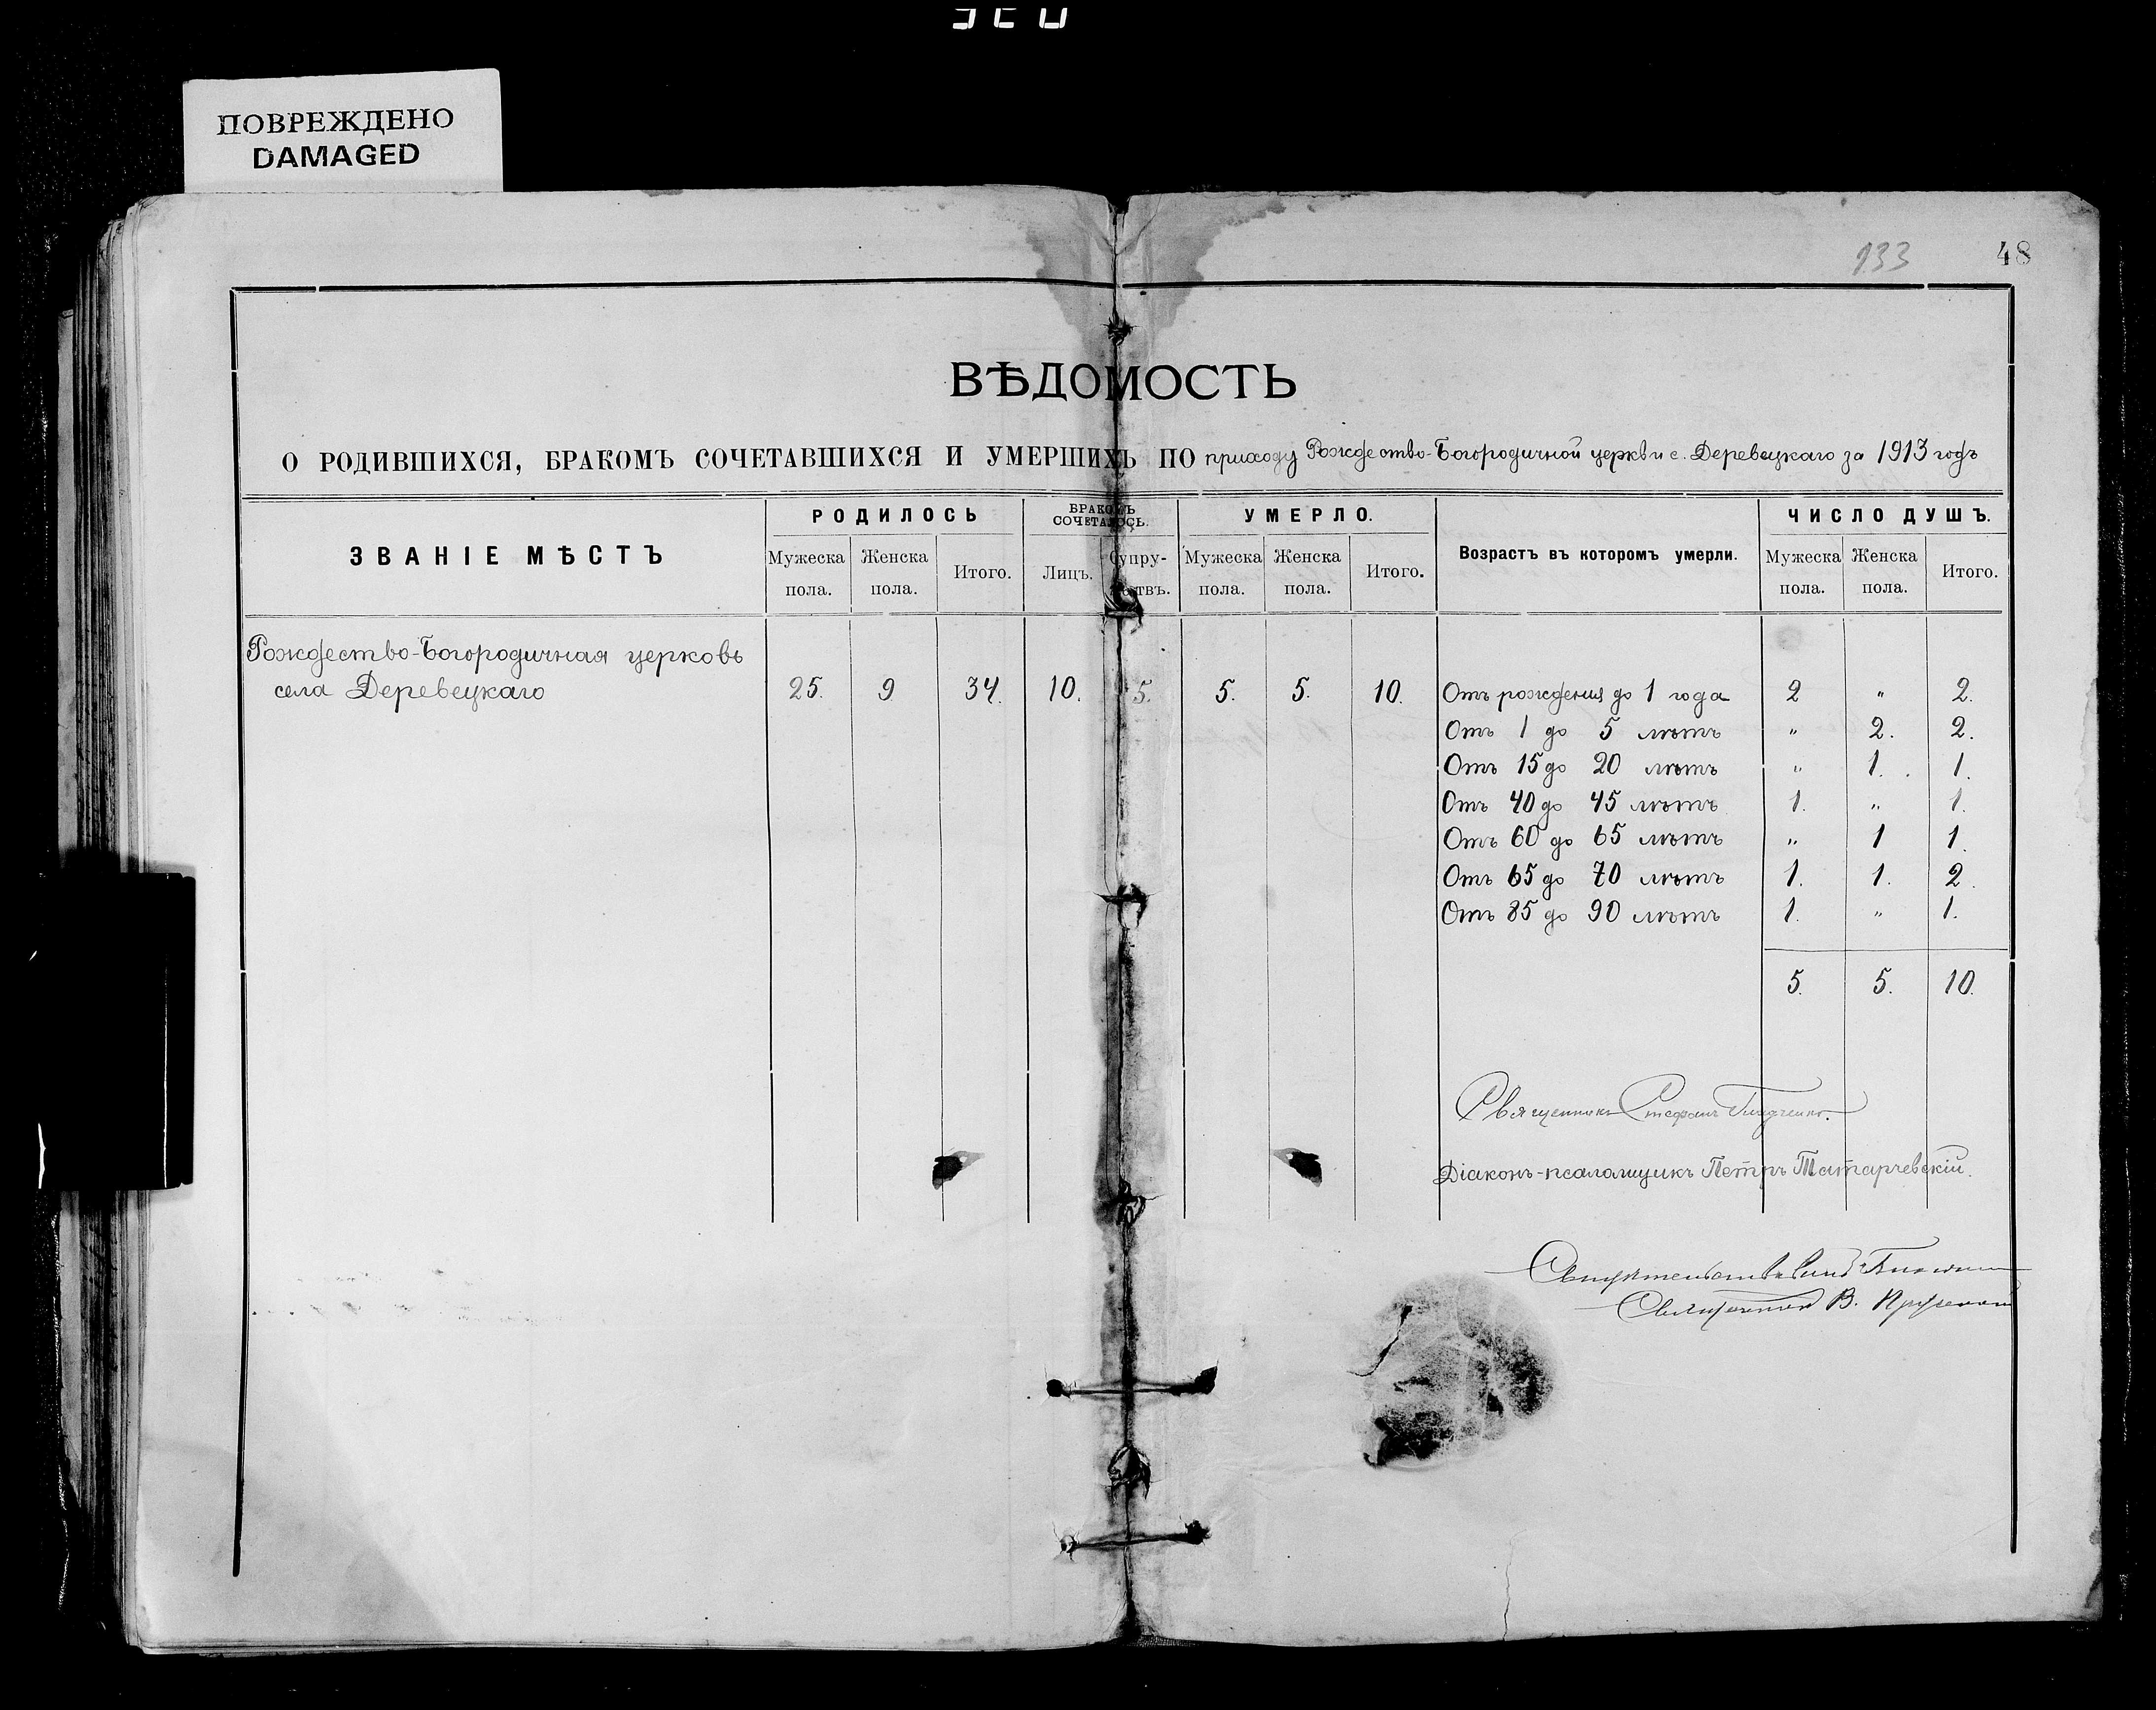 ПОВРЕЖДЕНО
DAMAGED
133 48
ВѢДОМОСТЬ
О РОДИВШИХСЯ, БРАКОМЪ СОЧЕТАВШИХСЯ И УМЕРШИХЪ ПО приходу Рождество-Богородичной церкви с. Деревецкаго за 1913 годъ
ЗВАНІЕ МѢСТЪ
РОДИЛОСЬ
Мужеска пола.
Женска пола.
Итого.
БРАКОМЪ СОЧЕТАЛОСЬ.
Лицъ.
Супружествъ.
УМЕРЛО.
Мужеска пола.
Женска пола.
Итого.
Возрастъ въ которомъ умерли.
ЧИСЛО ДУШЪ.
Мужеска пола.
Женска пола.
Итого.
Рождество-Богородичная церковь
села Деревецкаго 25. 9 34. 10. 5. 5. 5. 10. Отъ рожденія до 1 года 2 " 2.
Отъ 1 до 5 лѣтъ " 2. 2.
Отъ 15 до 20 лѣтъ " 1. 1.
Отъ 40 до 45 лѣтъ 1. " 1.
Отъ 60 до 65 лѣтъ " 1 1.
Отъ 65 до 70 лѣтъ 1. 1. 2.
Отъ 85 до 90 лѣтъ 1. " 1.
5. 5. 10.
Священникъ Стефанъ
Діаконъ-псаломщикъ Петръ Татарчевскій.
Священникъ В.